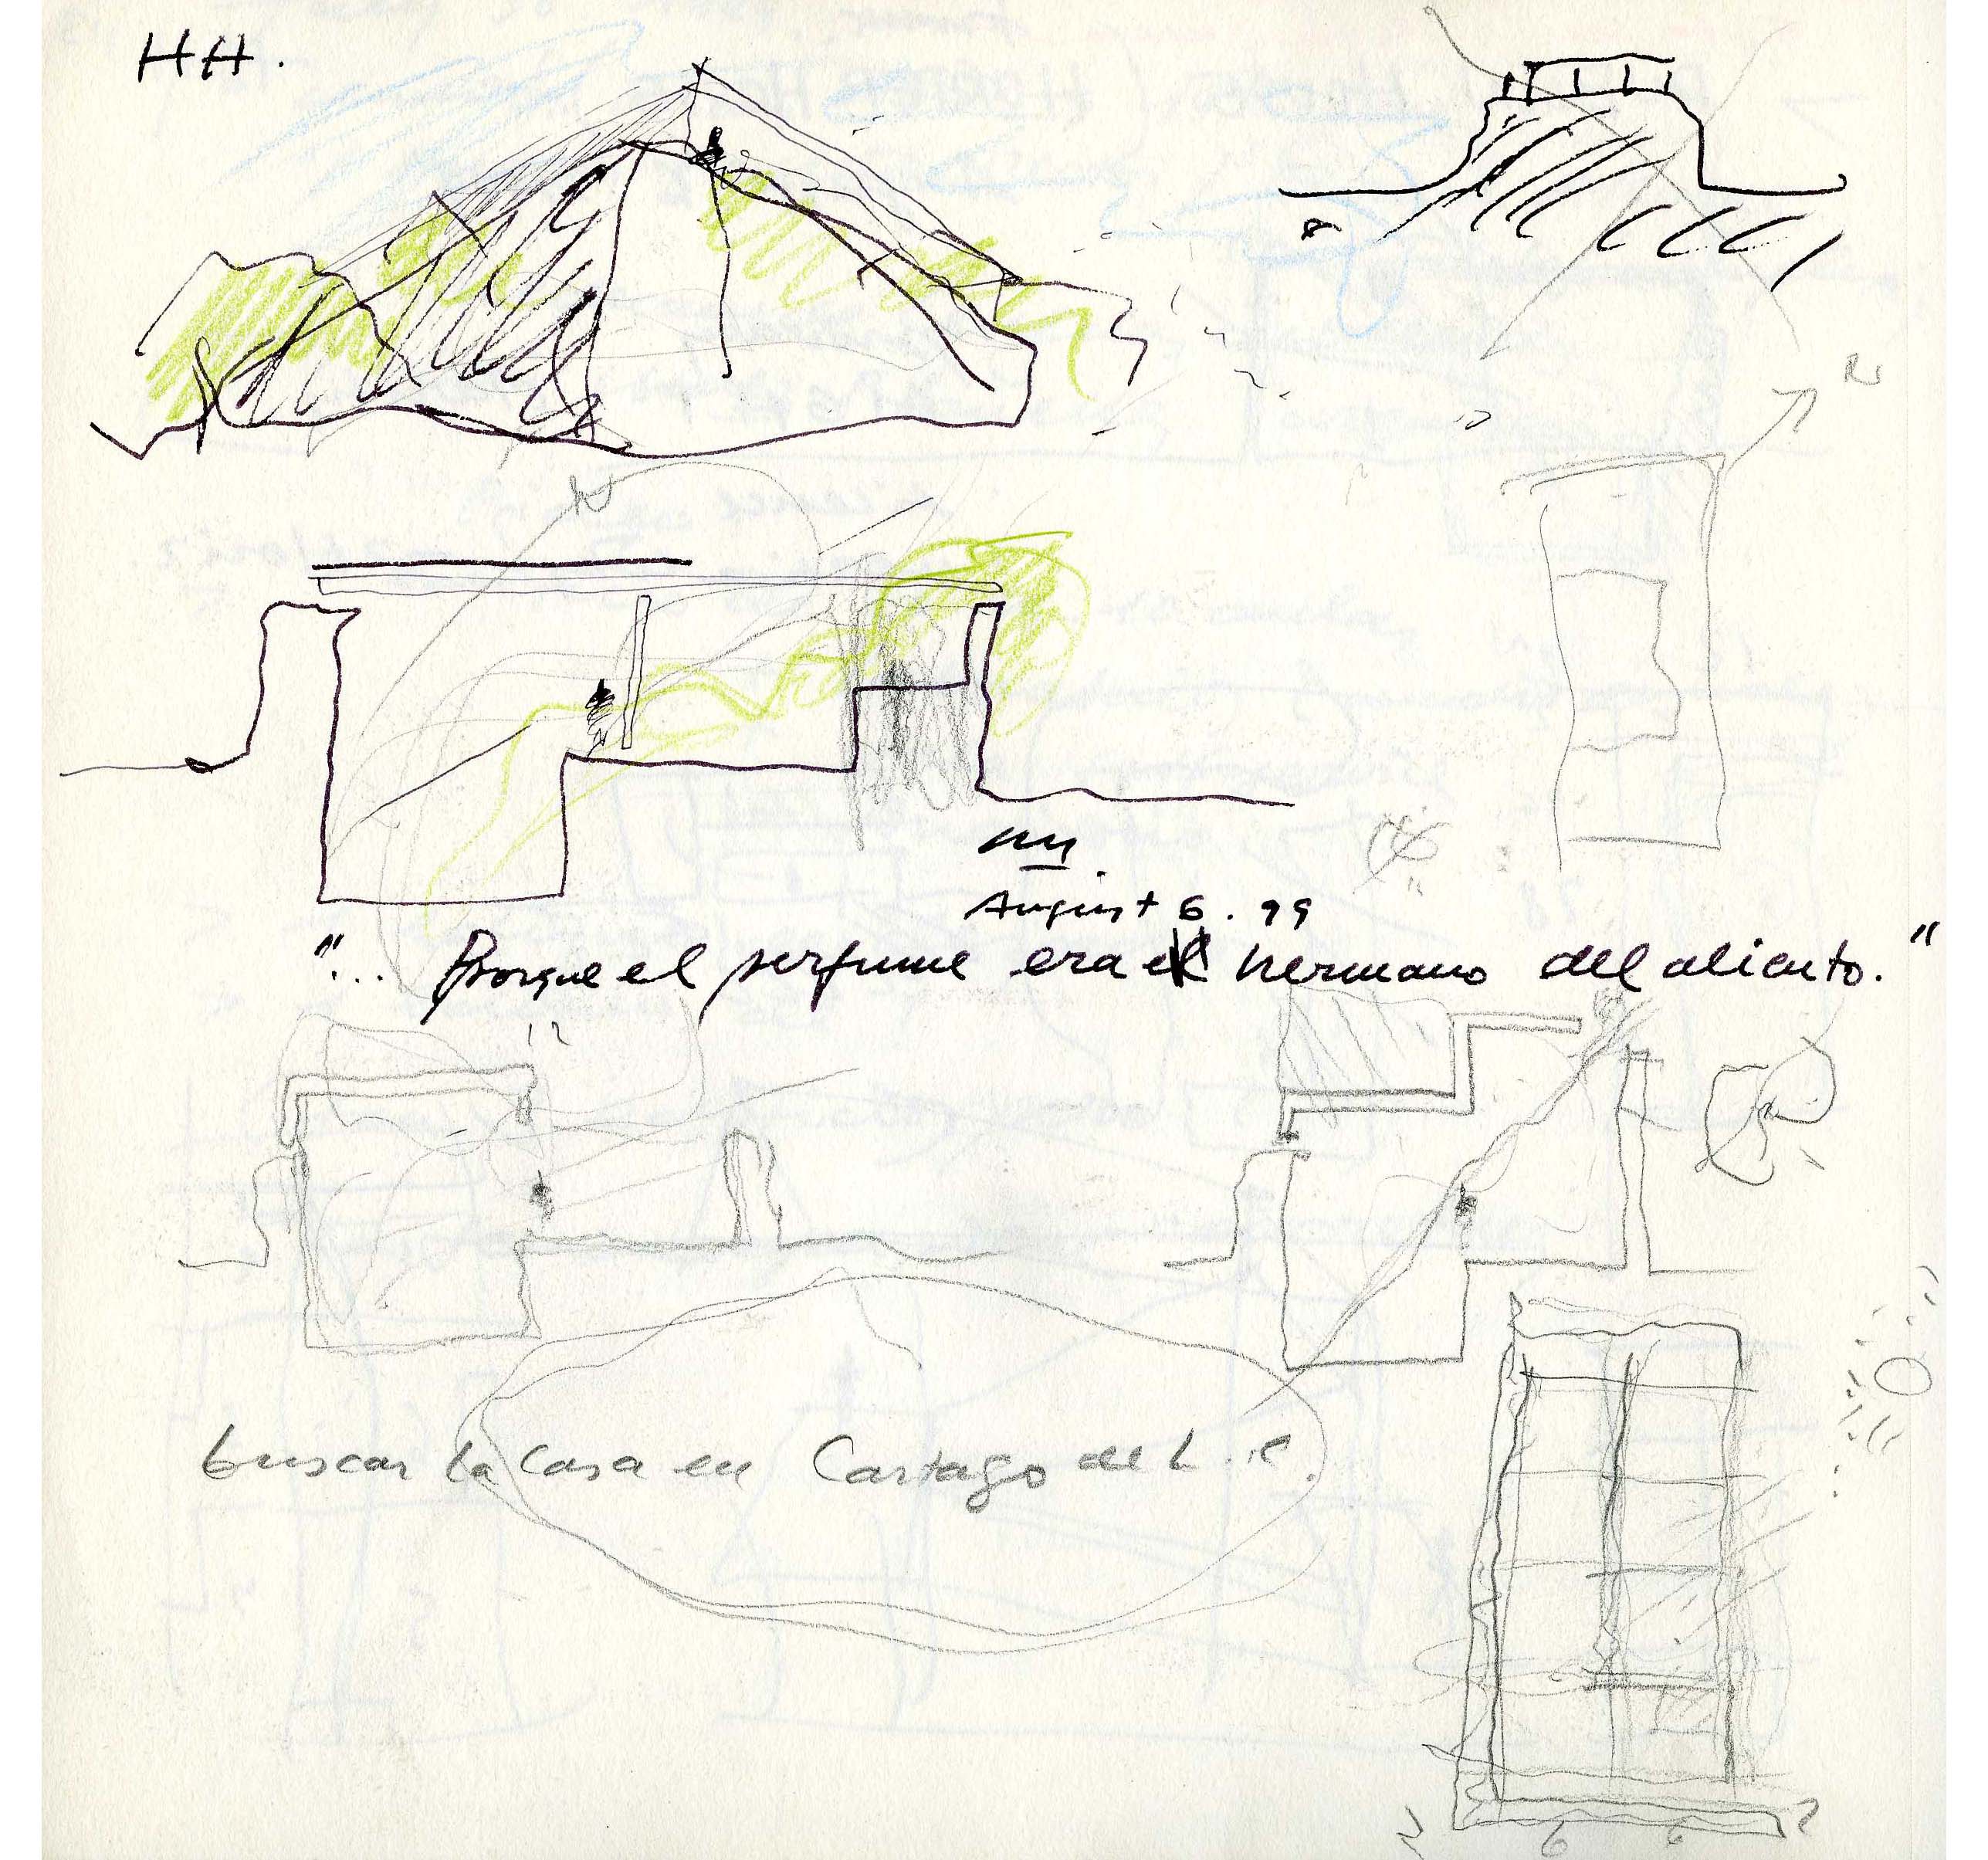 HH.
August 6. 99
"... Porque el perfume era el hermano del aliento."
buscar la casa en Cartago de L.C.